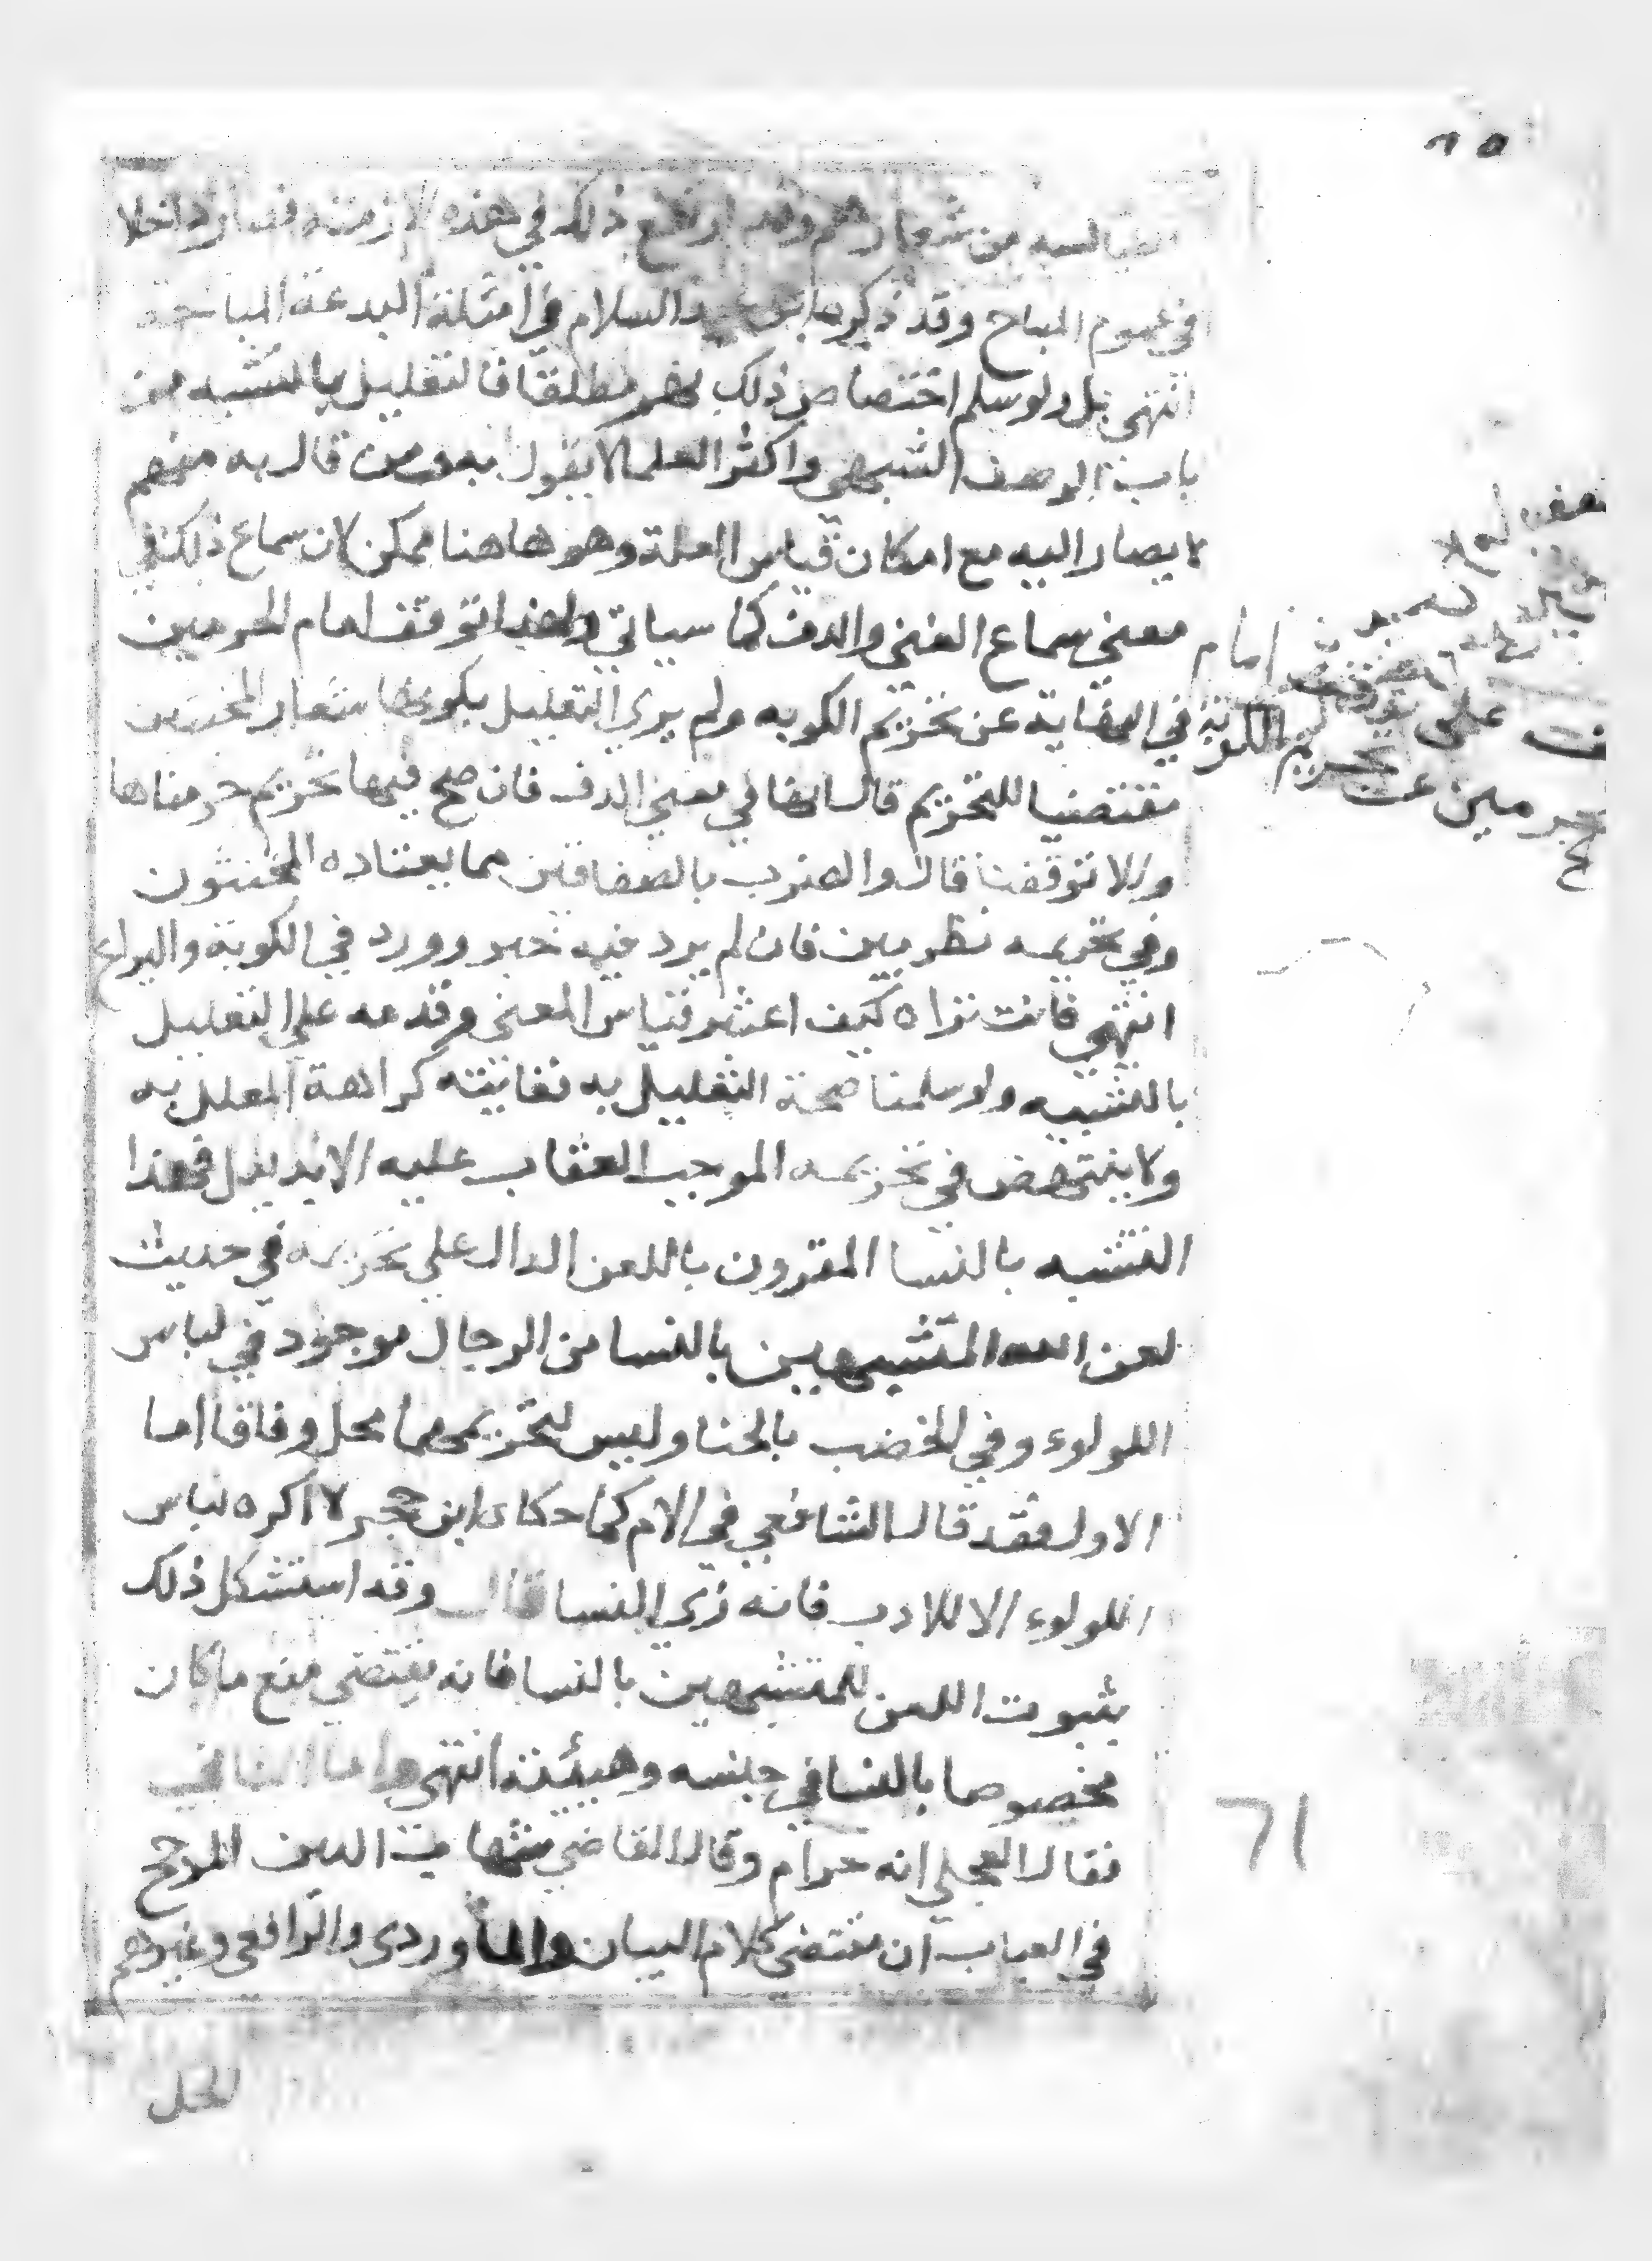 الطيالسه من شعارهم وقد ارتفع ذلك في هذه الازمنة فصار داخلا
في عموم المباح وقد ذكره ابن عبد السلام في امثلة البدعة المباحة
انتهى بل ولو سلم اختصاص ذلك بهم مطلقا فالتعليل بالتشبه من
باب الوصف الشبهي واكثر العلما لا يقول به ومن قال به منهم
لا يصار اليه مع امكان قياس العلة وهو هاهنا ممكن لان سماع ذلك في
معنى سماع الغنى والدف كما سياتي ولهذا توقف امام الحرمين
في النهاية عن تحريم الكوبه ولم يرى التعليل بكونها شعار المخنثين
مقتضيا للتحريم قال انها في معنى الدف فان صح فيها تحريم حرمناها
والا توقفنا قال والضرب بالصفاقتين مما يعتاده المخنثون
وفي تحريمه نظر بين فان لم يرد فيه خبر وورد في الكوبة واليراع
انتهى فانت تراه كيف اعتبر قياس المعنى وقدمه على التعليل
بالتشبه ولو سلمنا صحة التعليل به فغايته كراهة المعلل به
ولا ينتهض في تحريمه الموجب العقاب عليه الا بدليل فهذا
التشبه بالنسا المقرون باللعن الدال على تحريمه في حديث
لعن الله المتشبهين بالنسا من الرجال موجود في لباس
اللولوء وفي الخضب بالحنا وليس تحريمهما محل وفاقا اما
الاول فقد قال الشافعي في الام كما حكاه ابن حجر لا اكره لباس
اللولوء الا للادب فانه زي النسا قال وقد استشكل ذلك
بثبوت اللعن للمتشبهين بالنسا فانه يقتضي منع ما كان
مخصوصا بالنسا في جنسه وهيئته انتهى واما الثاني
فقال العجلي انه حرام وقال القاضي شهاب الدين المزجج
في العباب ان مقتضى كلام البيان والماوردي والرافعي وغيرهم
للحل
امام
على توقف
حرمين عن تحريم الكوبة
٦١